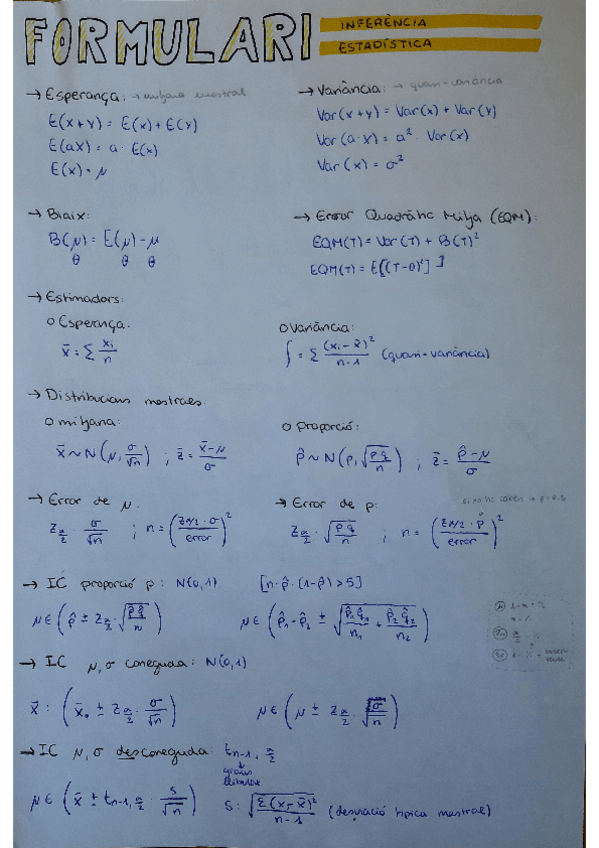 FORMULARI
INFERÈNCIA
ESTADÍSTICA
→ Esperança: → mitjana mostral
E(x+y) = E(x) + E(y)
E(aX) = a · E(x)
E(x) = μ
→ Variància: → quasi-variància
Var(x+y) = Var(x) + Var(y)
Var(a·X) = a² · Var(x)
Var(x) = σ²
→ Biaix:
B(μ) = E(μ) - μ
θ θ θ
→ Error Quadràtic Mitjà (EQM):
EQM(T) = Var(T) + B(T)²
EQM(T) = E[(T-θ)²]
→ Estimadors:
o Esperança:
x̄ = Σ xᵢ/n
o Variància:
∫ = Σ (xᵢ - x̄)²/n-1 (quasi-variància)
→ Distribucions mostrals:
o mitjana:
x̄ ~ N(μ, σ/√n) ; z̄ = x̄-μ/σ
o Proporció:
p̂ ~ N(p, √(p q/n)) ; z̄ = p̂-μ/σ
→ Error de μ:
z α/2 · σ/√n ; n = (z α/2 · σ/error)²
→ Error de p:
z α/2 · √(p q/n) ; n = (z α/2 · p̂/error)²
→ IC proporció p: N(0,1) [n·p̂·(1-p̂)>5]
μ ∈ (p̂ ± z α/2 · √(p̂ q̂/n))
μ ∈ (p̂₁ - p̂₂ ± √(p̂₁ q̂₁/n₁ + p̂₂ q̂₂/n₂))
→ IC μ, σ coneguda: N(0,1)
x̄ : (x̄ ± z α/2 · σ/√n)
μ ∈ (μ ± z α/2 · σ/√n)
→ IC μ, σ desconeguda: tn-1, α/2
graus
llibertat
μ ∈ (x̄ ± tn-1, α/2 · s/√n)
S: √(Σ(xᵢ-x̄)²/n-1) (desviació típica mostral)